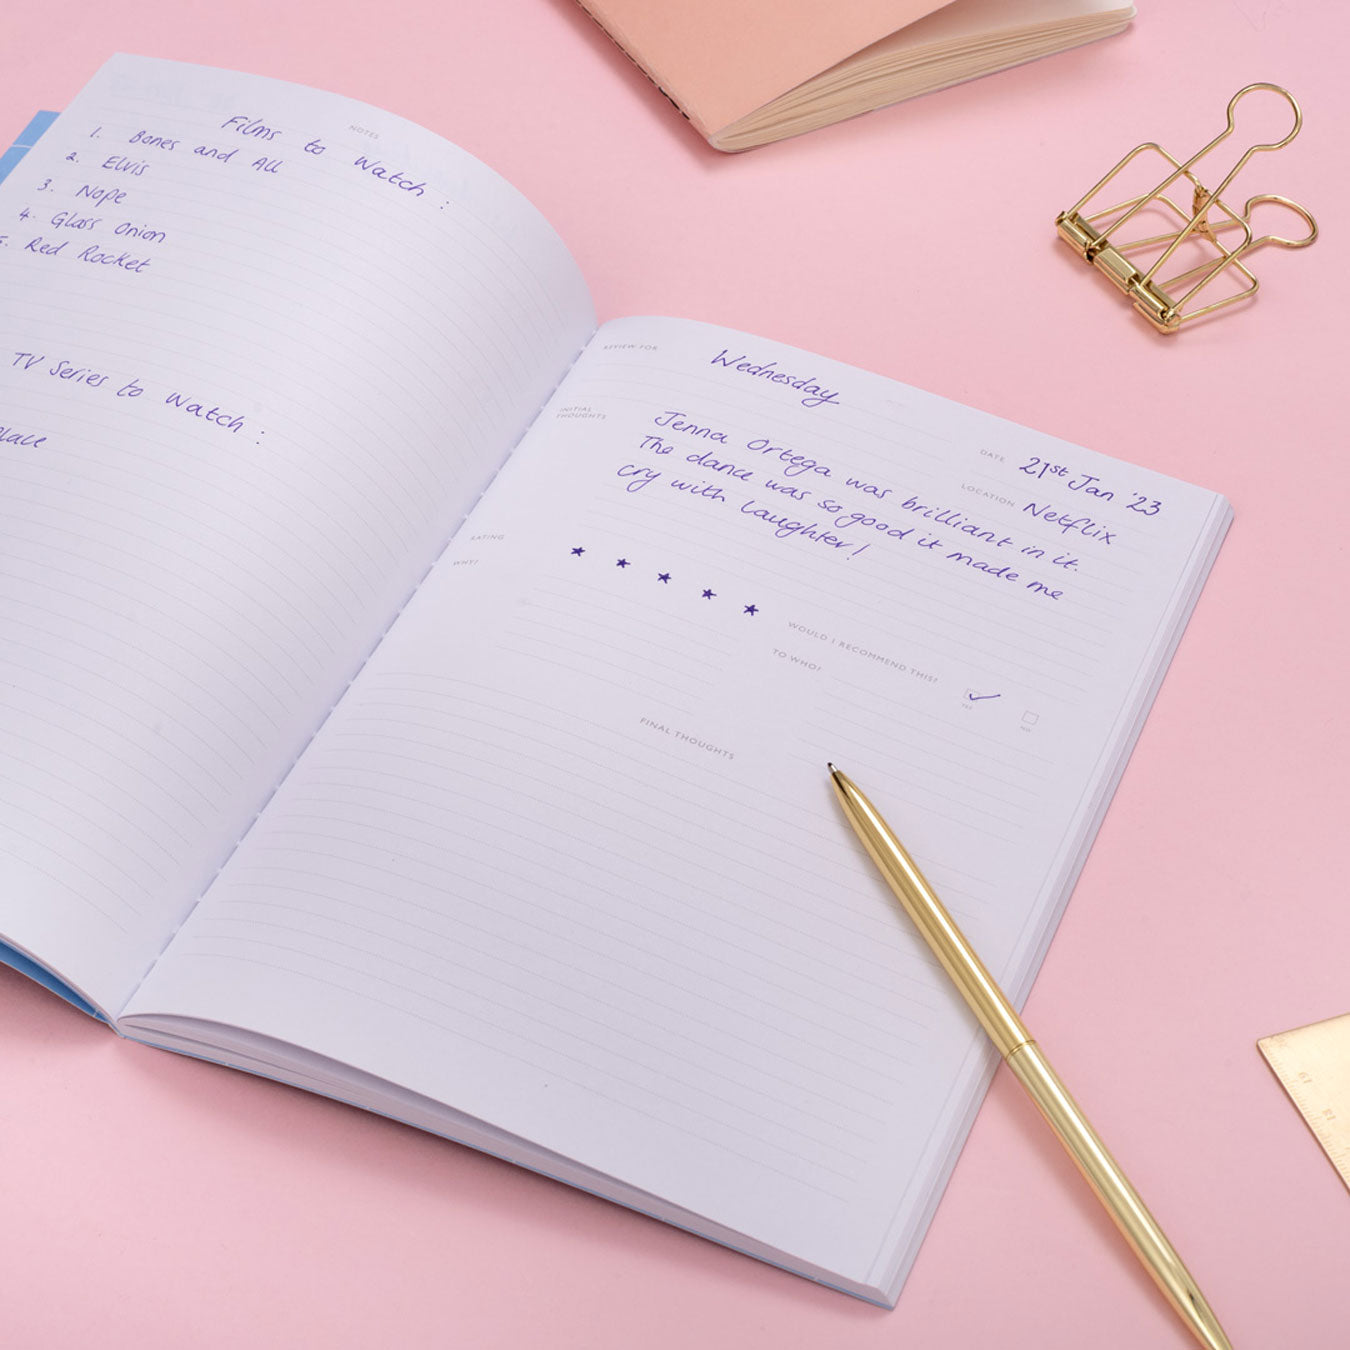 NOTES
Films to Watch :
1. Bones and All
2. Elvis
3. Nope
4. Glass Onion
5. Red Rocket
TV Series to Watch :
REVIEW FOR
Wednesday
DATE 21st Jan '23
LOCATION Netflix
INITIAL
THOUGHTS
Jenna Ortega was brilliant in it.
The dance was so good it made me
cry with laughter!
RATING
★ ★ ★ ★ ★
WHY?
WOULD I RECOMMEND THIS?
YES
NO
TO WHO?
FINAL THOUGHTS